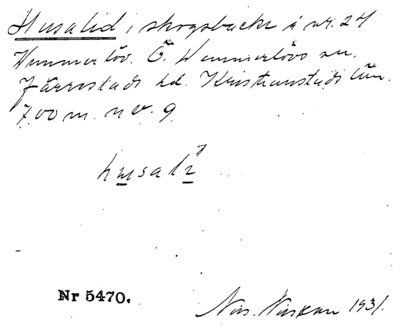 Husalid i skogsbacke å nr. 24
Hammerlöv. Ö. Hammerlövs sn.
Järrestads hd. Kristianstads län.
700 m. n v. 9.
husali
Nr 5470.
1931.